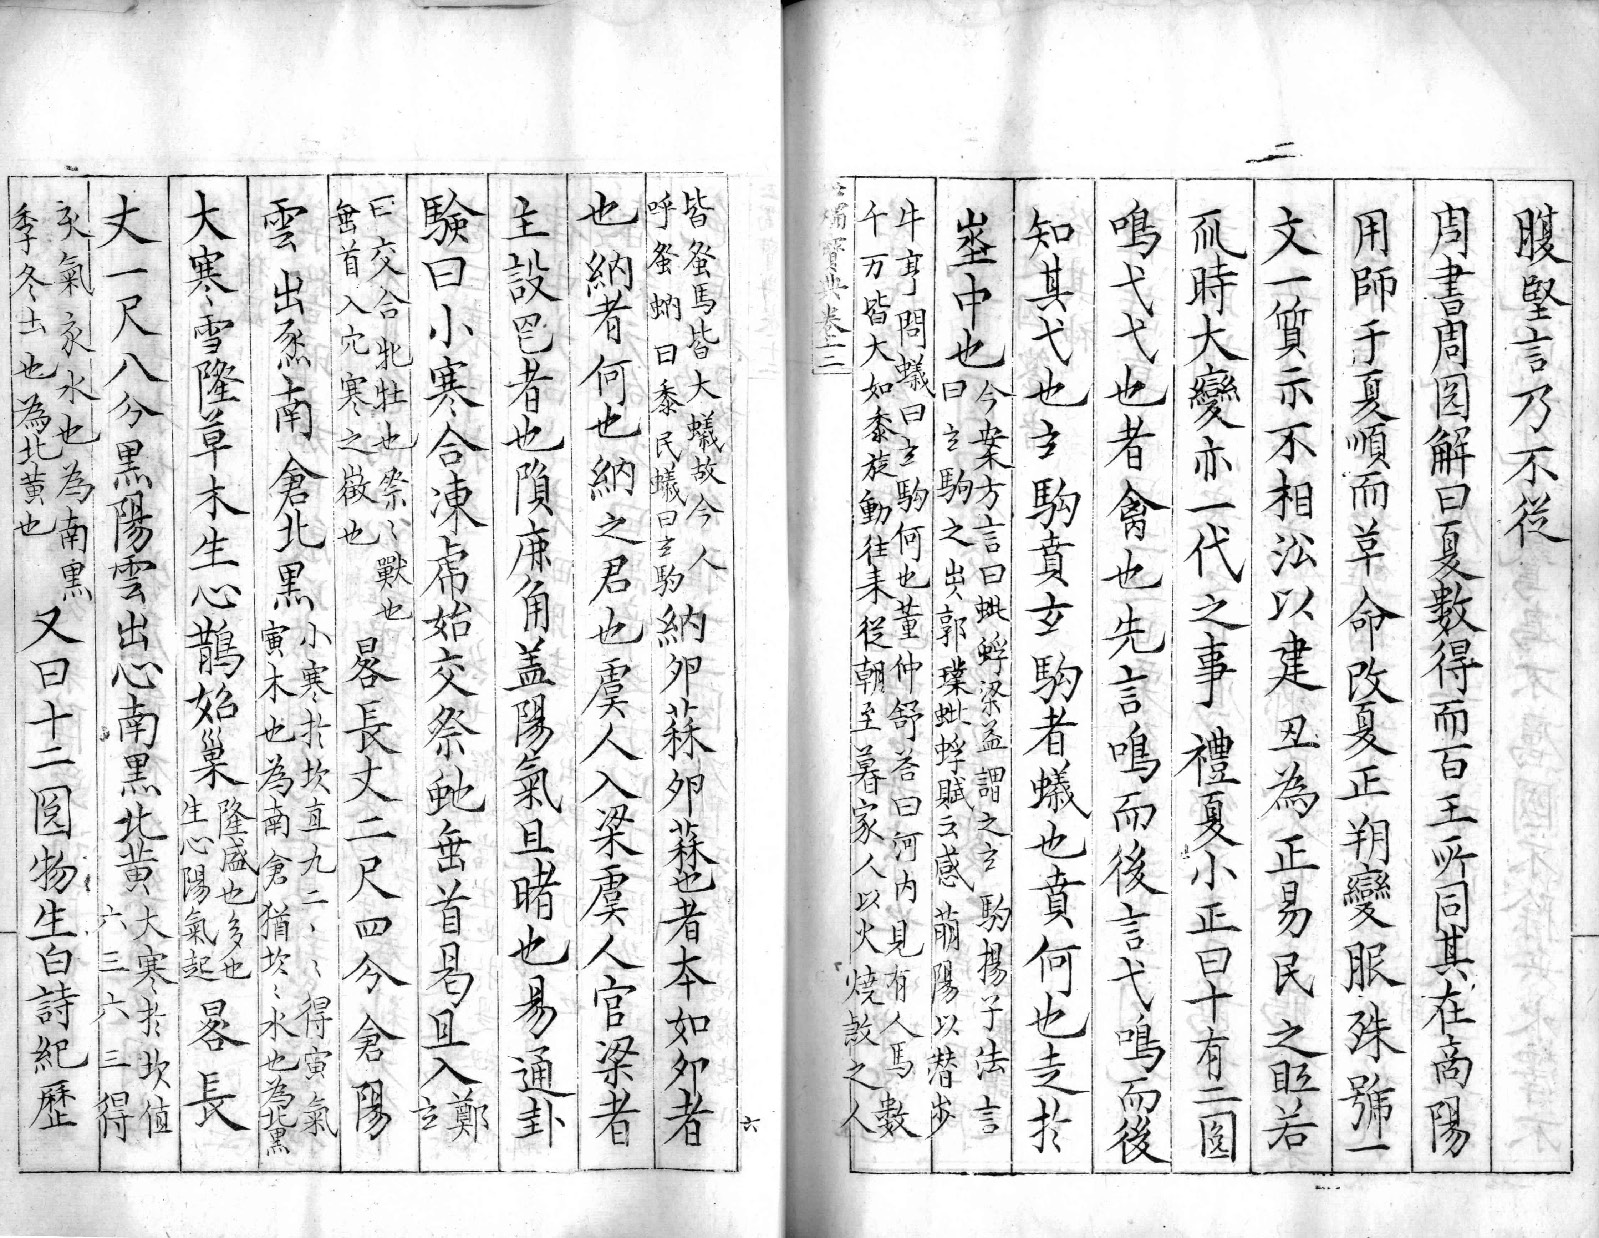 二
腹堅言乃不從
周書周圀解曰夏數得而百王所同其在商陽
用師于夏順而草命改夏正朔變服殊號一
文一質示不相沿以建丑為正易民之眂若
夭時大變亦一代之事禮夏小正曰十有二圀
鳴弋弋也者禽也先言鳴而後言弋鳴而後
知其弋也玄駒賁玄駒者蟻也賁何也走於
埊中也
今案方言曰蚍蜉梁益謂之玄駒楊子法言
曰玄駒之出郭璞蚍蜉賦云感萠陽以潜步
牛亨問蟻曰玄駒何也董仲舒荅曰河内見有人馬數
千万皆大如黍旋動往来従朝至暮家人以火燒敚之人
燭寳典卷十二
六
皆蚤馬皆大蟻故今人
呼蚤蚋曰黍民蟻曰玄駒
納夘蒜夘蒜也者本如夘者
也納者何也納之君也虞人入梁虞人官梁者
主設罟者也隕麻角盖陽氣且睹也易通卦
驗曰小寒合凍虎始交祭虵垂首曷且入
鄭
玄
曰交合牝牡也祭〻獸也
垂首入穴寒之徵也
晷長丈二尺四分倉陽
雲出烝南倉北黒
小寒於坎直九二〻〻得寅氣
寅木也為南倉猶坎〻水也為北黒
大寒雪隆草木生心鵲始巢
隆盛也多也
生心陽氣起
晷長
丈一尺八分黒陽雲出心南黒北黄
大寒於坎值
六三六三得
亥氣亥水也為南黒
季冬土也為北黄也
又曰十二圀物生白詩紀歴